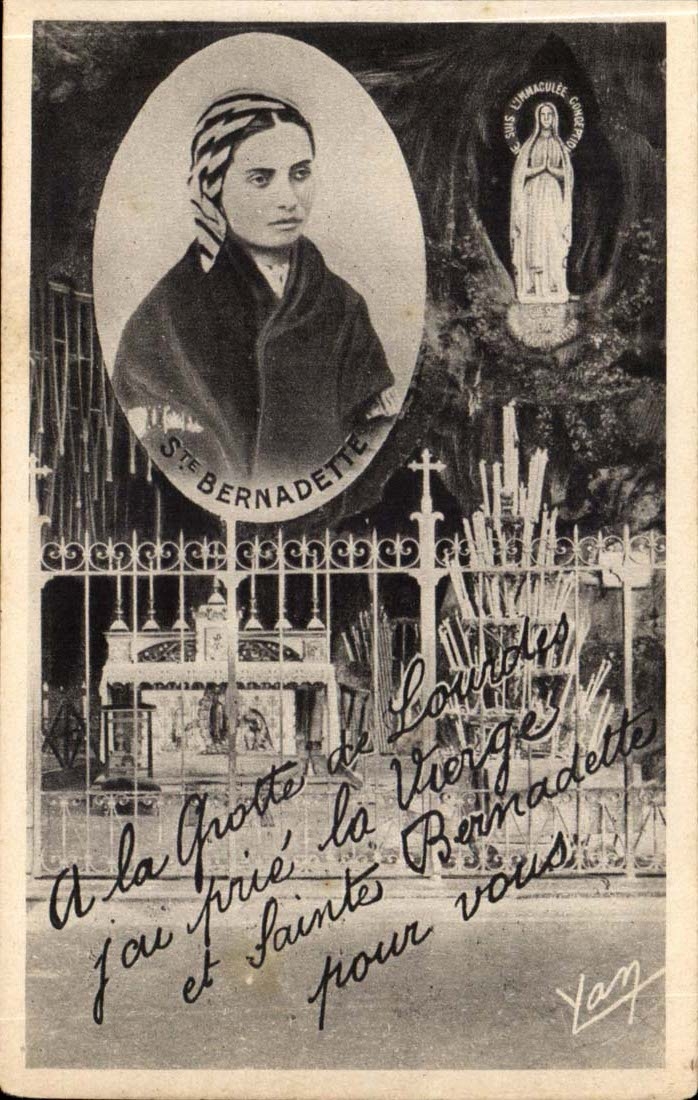 JE SUIS L'IMMACULÉE CONCEPTION
STE BERNADETTE
A la Grotte de Lourdes
j'ai prié la Vierge
et Sainte Bernadette
pour vous.
Yan